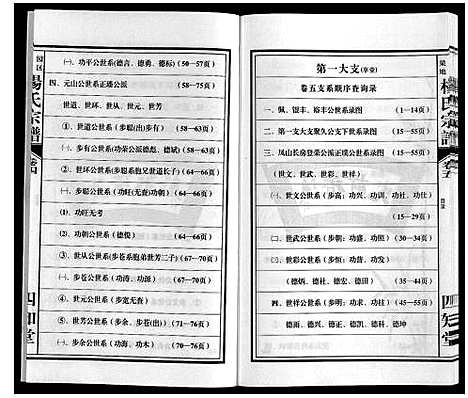 第一大支(享堂)
卷五支系顺序查询录
一、佩、银丰、裕丰公世系录图 (1—14页)
二、第一支大支聚久公支下世系录图 (15—55页)
三、凤山长房登荣公派正璞公世系录图 (15—55页)
(世文、世武、世彩、世祥)
㈠、世文公世系(步高:功兴、功训、功杜、功仕)
(15—29页)
㈡、世武公世系(步朝:功盛、功照) (30—34页)
㈢、世彩公世系(步恒:功昔、功发)
(德炳、德杜、德宏、德田) (35—44页)
四、世祥公世系(步明:功求、功柱) (45—55页)
德雨、德兴、德正、德凯、德科、德坤
楊氏宗譜
卷五
目录
四知堂
园区
楊氏宗譜
卷四
四知堂
㈠、功平公世系(德言、德勇、德标) (50—57页)
四、元山公世系正璠公派 (58—75页)
世道、世环、世从、世元、世芳
①、世道公世系(步聪(出)步有) (58—63页)
㈠、步有公世系(功荣公派德彪、德斌) (58—63页)
②、世环公世系(步聪系胞兄世道长子) (64—66页)
㈠、步聪公世系(功旺(无查)功朝) (64—66页)
⑴、功旺无考
⑵、功朝公世系(德悦) (64—66页)
③、世从公世系(步苍系胞弟世芳二子) (67—70页)
㈠、步苍公世系(功涛、功派) (67—70页)
④、世元公世系(步宽无查)
⑤、世芳公世系(步余、步苍(出)) (71—76页)
㈠、步余公世系(功海、功木) (70—76页)